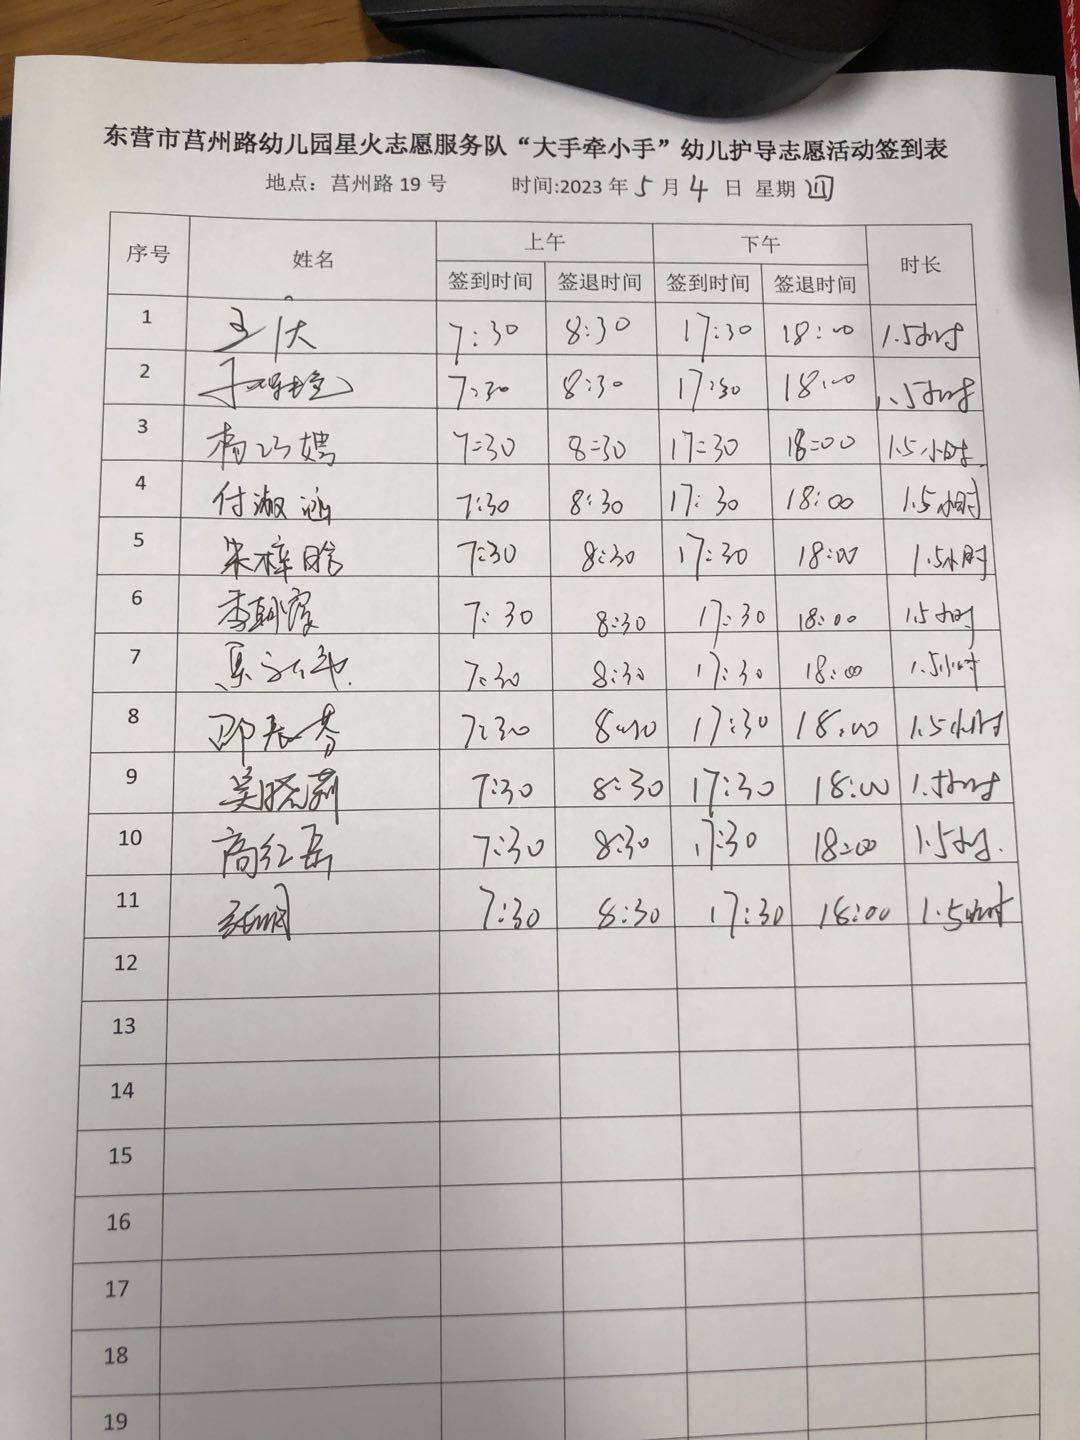 东营市莒州路幼儿园星火志愿服务队“大手牵小手”幼儿护导志愿活动签到表
地点：莒州路 19 号 时间:2023 年 5 月 4 日 星期 四
序号 姓名 上午 下午 时长
签到时间 签退时间 签到时间 签退时间
1 7:30 8:30 17:30 18:00 1.5小时
2 7:30 8:30 17:30 18:00 1.5小时
3 杨巧娉 7:30 8:30 17:30 18:00 1.5小时
4 付淑涵 7:30 8:30 17:30 18:00 1.5小时
5 朱梓晗 7:30 8:30 17:30 18:00 1.5小时
6 李朝霞 7:30 8:30 17:30 18:00 1.5小时
7 7:30 8:30 17:30 18:00 1.5小时
8 邵长芬 7:30 8:30 17:30 18:00 1.5小时
9 吴晓莉 7:30 8:30 17:30 18:00 1.5小时
10 高红岳 7:30 8:30 17:30 18:00 1.5小时.
11 7:30 8:30 17:30 18:00 1.5小时
12
13
14
15
16
17
18
19